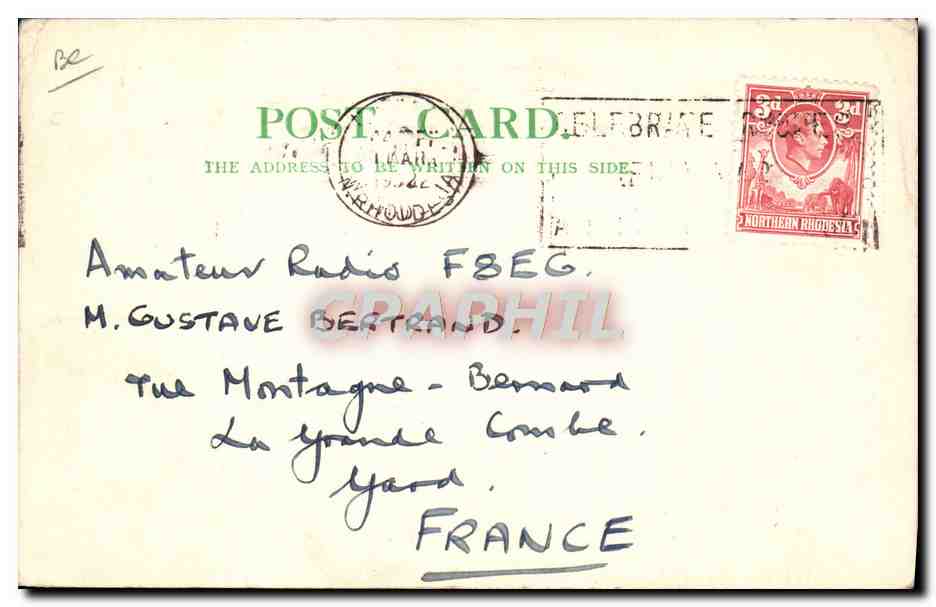 Be
POST CARD.
THE ADDRESS TO BE WRITTEN ON THIS SIDE.
N.RHODESIA
3d 3d
NORTHERN RHODESIA
Amateur Radio F8EG.
M. GUSTAVE BERTRAND.
CPAPHIL
rue Montagne - Bernard
La Grande Combe.
Gard.
FRANCE